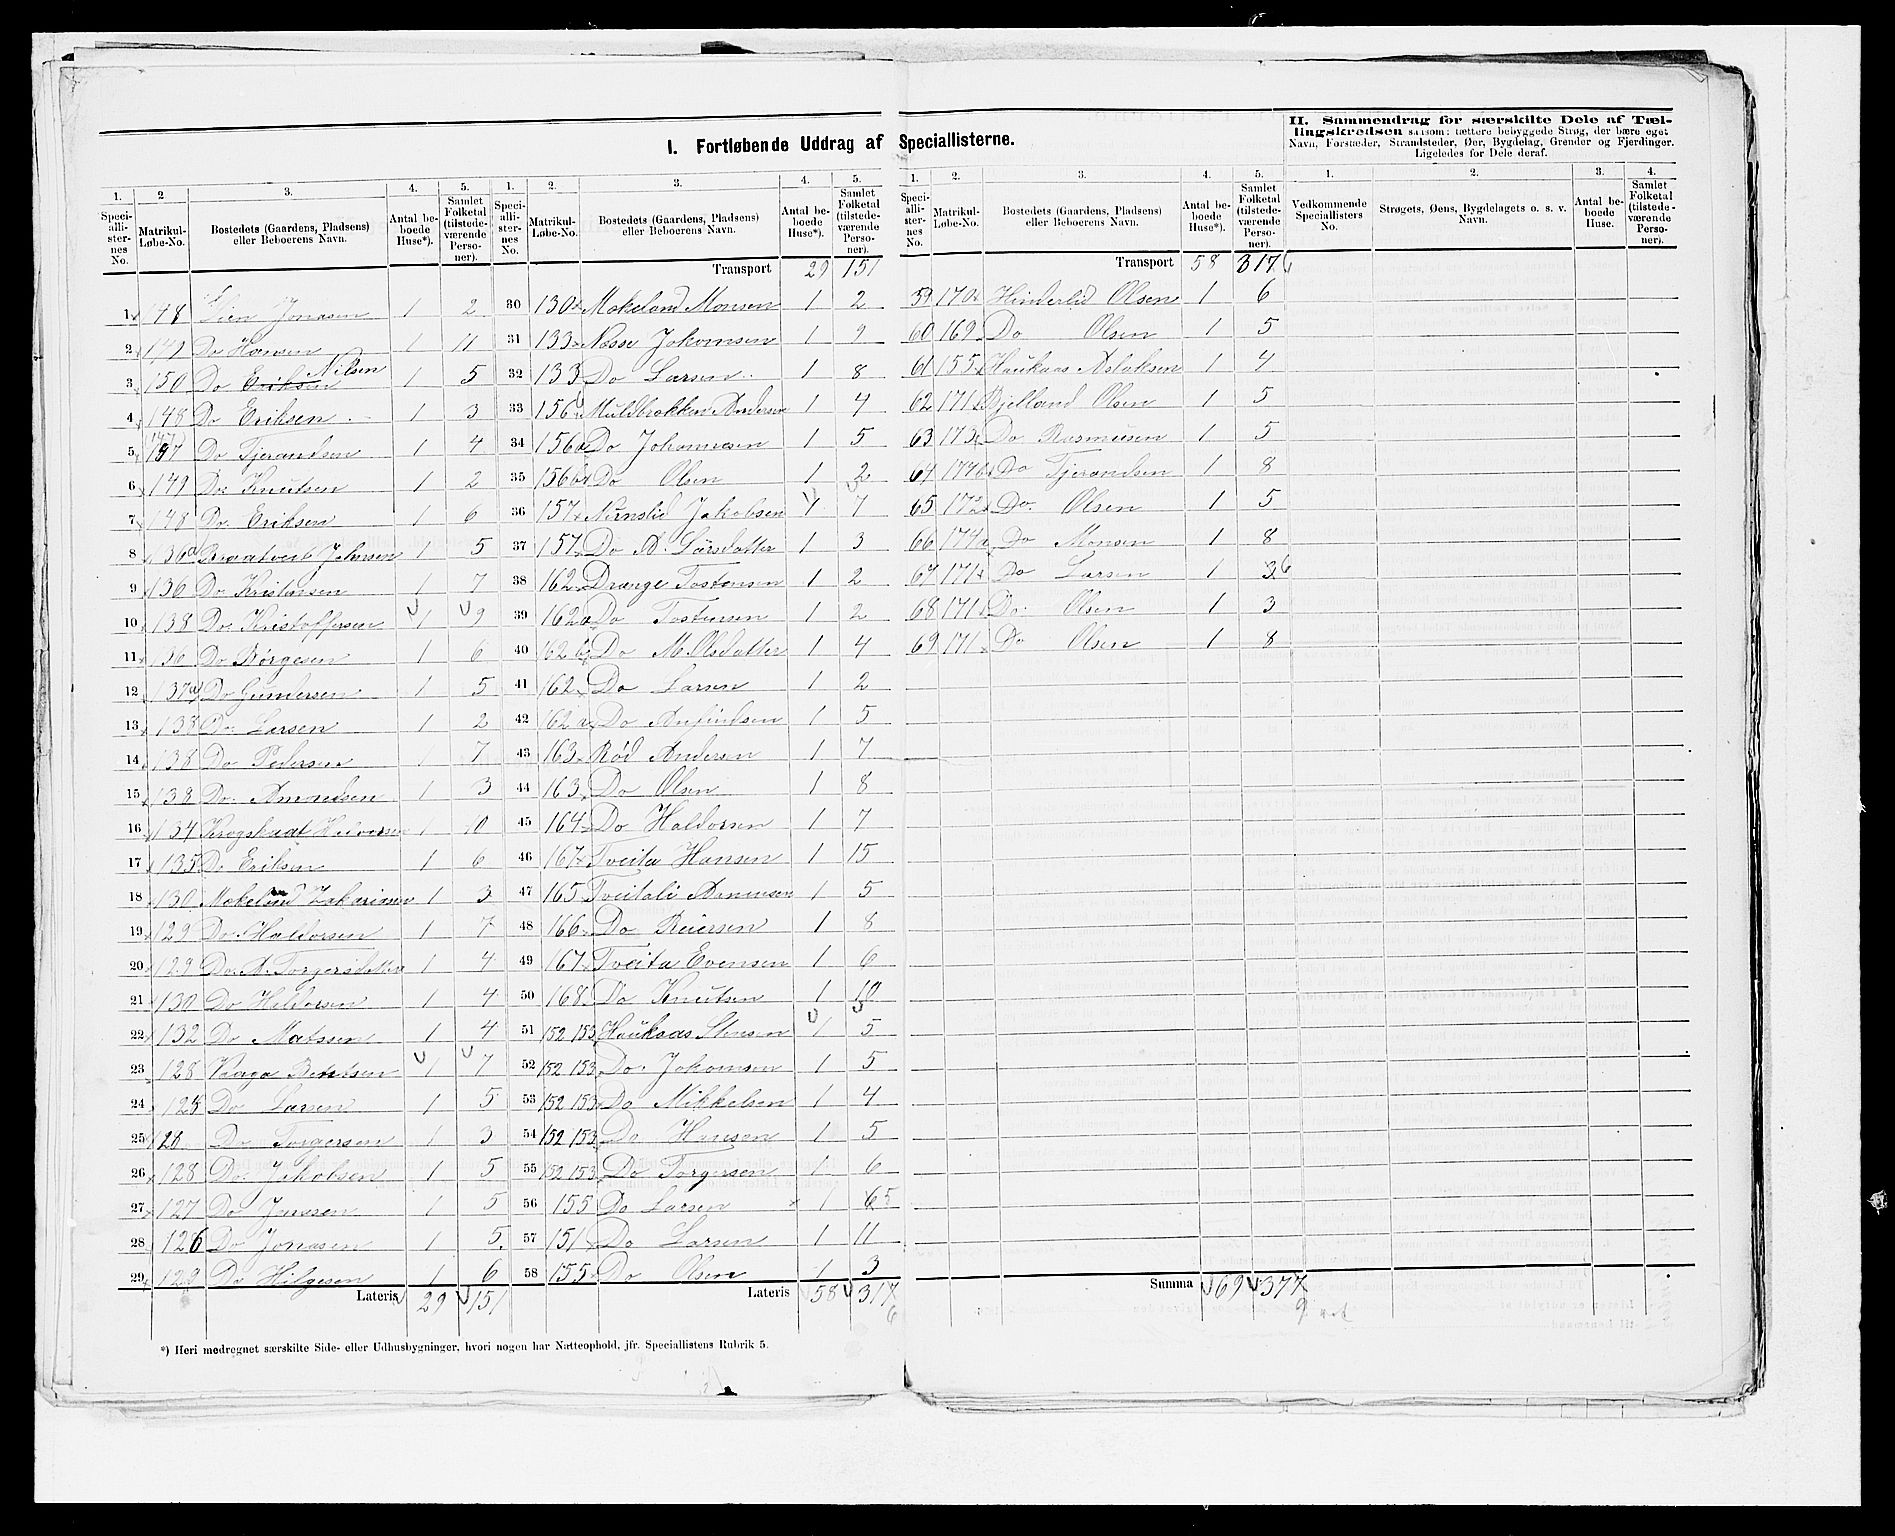 I. Fortløbende Uddrag af Speciallisterne.
II. Sammendrag for særskilte Dele af Tællingskredsen saasom: tættere bebyggede Strøg, der bære eget Navn, Forstæder, Strandsteder, Øer, Bygdelag, Grender og Fjerdinger. Ligeledes for Dele deraf.
1. 2 3. 4. 5.
Speciallisternes No. Matrikul-Løbe-No. Bostedets (Gaardens, Pladsens) eller Beboerens Navn. Antal beboede Huse*). Samlet Folketal (tilstedeværende Personer).
1 148 Lien Jonasen 1 2
2 149 Do Hansen 1 11
3 150 Do Eriksen Nilsen 1 5
4 148 Do Eriksen 1 3
5 147 Do Tjerandsen 1 4
6 149 Do Knutsen 1 2
7 148 Do Eriksen 1 6
8 136a Braatveit Johnsen 1 5
9 136 Do Kristensen 1 7
10 138 Do Kristoffersen 1 9
11 136 Do Børgesen 1 6
12 137a Do Gundersen 1 5
13 138 Do Larsen 1 2
14 138 Do Pedersen 1 7
15 138 Do Amondsen 1 3
16 134 Krogstuat Halvorsen 1 10
17 135 Do Eriksen 1 6
18 130 Mokeland Zakariasen 1 3
19 129 Do Haldorsen 1 7
20 129 Do A. Torgersdatter 1 4
21 130 Do Haldorsen 1 4
22 132 Do Matssen 1 4
23 128 Vaaga Bentsen 1 7
24 128 Do Larsen 1 5
25 Do Torgersen 1 3
26 128 Do Jakobsen 1 5
27 127 Do Jenssen 1 5
28 126 Do Jonasen 1 5.
29 129 Do Hilgesen 1 6
Lateris 29 151
1. 2. 3. 4. 5.
Speciallisternes No. Matrikul-Løbe-No. Bostedets (Gaardens, Pladsens) eller Beboerens Navn. Antal beboede Huse*). Samlet Folketal (tilstedeværende Personer).
Transport 29 151
30 130 Mokeland Monsen 1 2
31 133 Næsse Jokomsen 1 9
32 133 Do Larsen 1 8
33 156 Muldbrokken Andersen 1 4
34 156a Do Johannesen 1 5
35 156b Do Olsen 1 2
36 157 Nernslid Jakobsen 1 7
37 157 Do A. Larsdatter 1 3
38 162 Drange Tostensen 1 2
39 162a Do Tostensen 1 2
40 162b Do M. Olsdatter 1 4
41 162 Do Larsen 1 2
42 162a Do Anfindsen 1 5
43 163 Rød Andersen 1 7
44 163 Do Olsen 1 8
45 164 Do Haldorsen 1 7
46 167 Tveita Hansen 1 15
47 165 Tveitali Amensen 1 5
48 166 Do Reiersen 1 8
49 167 Tveita Evensen 1 6
50 168 Do Knutsen 1 10
51 152 153 Haukaas Stensen 1 5
52 152 153 Do Jokomsen 1 5
53 152 153 Do Mikkelsen 1 4
54 152 153 Do Hansen 1 5
55 152 153 Do Torgersen 1 6
56 155 Do Larsen × 1 6 5
57 151 Do Larsen 1 11
58 155 Do Olsen 1 3
Lateris 58 317
6
*) Heri medregnet særskilte Side- eller Udhusbygninger, hvori nogen har Natteophold, jfr. Speciallistens Rubrik 5.
1. 2. 3. 4. 5.
Speciallisternes No. Matrikul-Løbe-No. Bostedets (Gaardens, Pladsens) eller Beboerens Navn. Antal beboede Huse*). Samlet Folketal (tilstedeværende Personer).
Transport 58 317
59 170 Hinderlid Olsen 1 6
60 169 Do Olsen 1 5
61 155 Haukaas Aslaksen 1 4
62 171 Bjelland Olsen 1 5
63 173 Do Rasmusen 1 5
64 174b Do Tjerandsen 1 8
65 172 Do Olsen 1 5
66 174a Do Monsen 1 8
67 171 Do Larsen 1 3 6
68 171 Do Olsen 1 3
69 171 Do Olsen 1 8
Summa 69 377
9
1. 2. 3. 4.
Vedkommende Speciallisters No. Strøgets, Øens, Bygdelagets o. s. v. Navn. Antal beboede Huse. Samlet Folketal (tilstedeværende Personer).